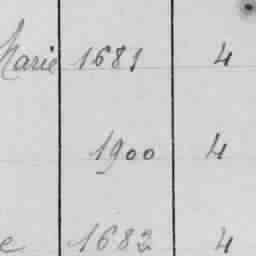 Marie 1681 4
1900 4
e 1682 4